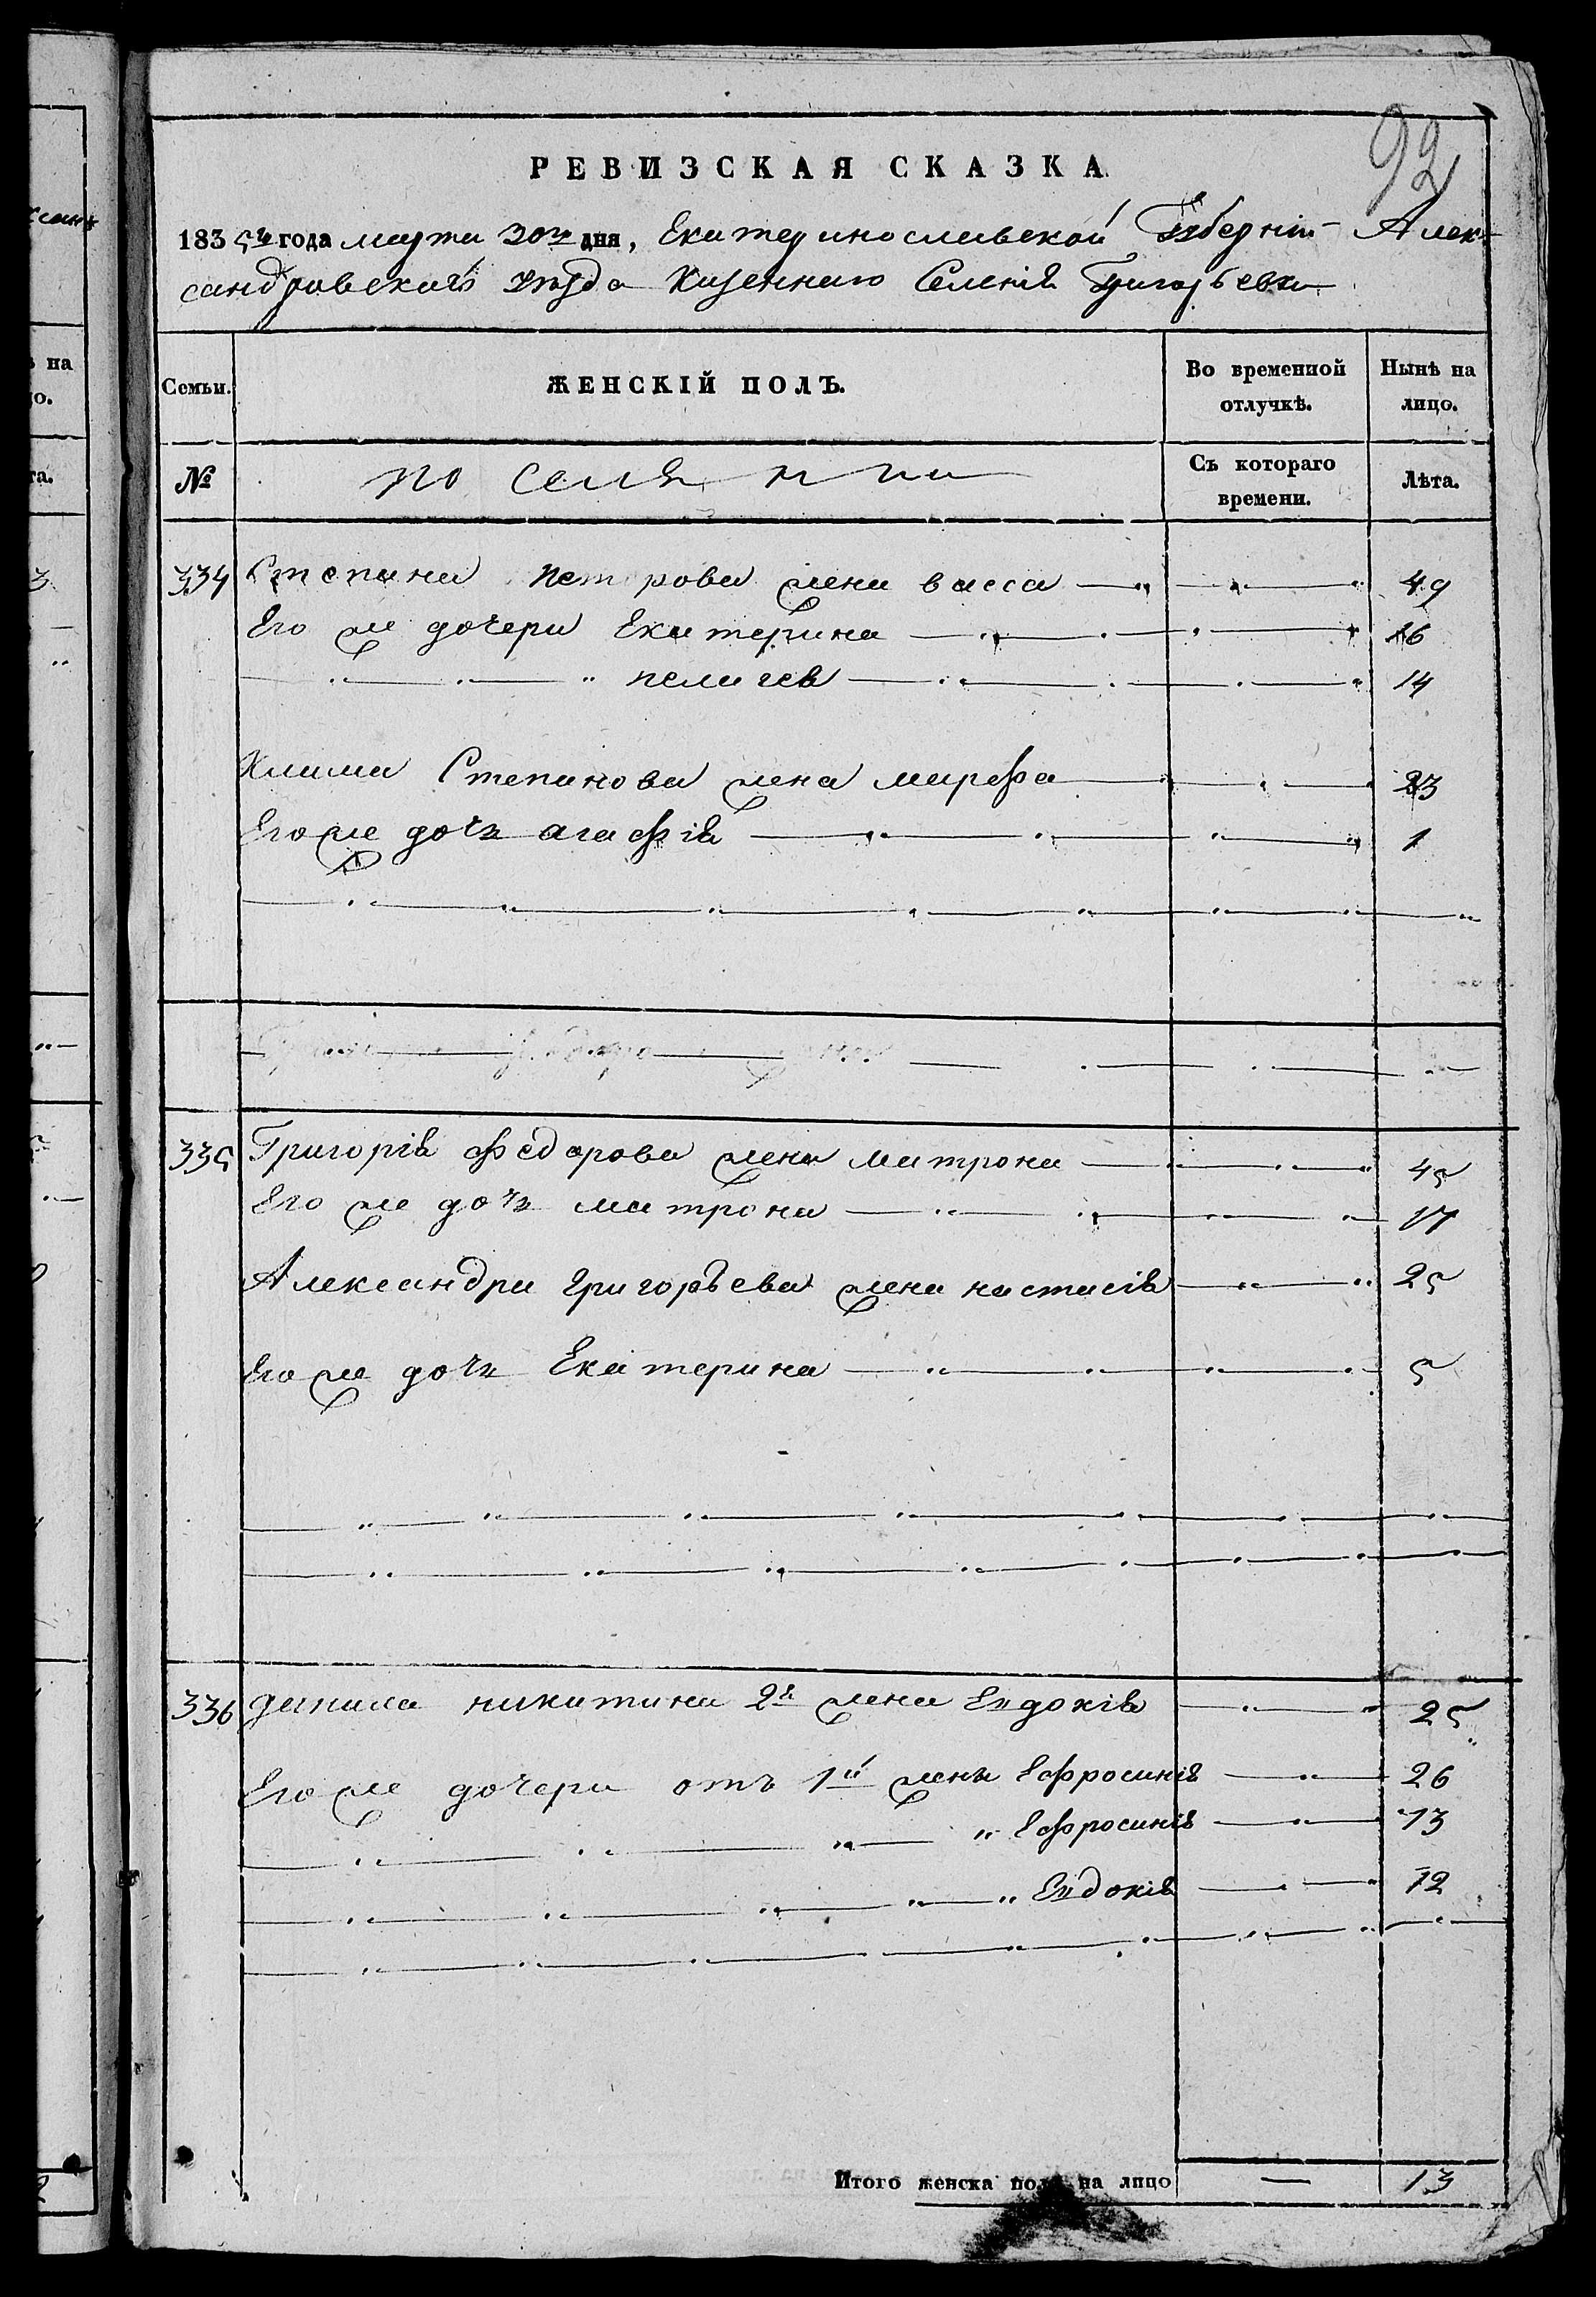 92
РЕВИЗСКАЯ СКАЗКА
1835го года марта 20го дня, Екатеринославской Губерніи Алек-
сандровскаго уѣзда Казеннаго Селенія Григорьевки
Семьи.
ЖЕНСКІЙ ПОЛЪ.
Во временной отлучкѣ.
Нынѣ на лицо.
№
поселяне
Съ котораго времени.
Лѣта.
334 Степана Петрова жена васса 49
Его же дочери Екатерина 16
пелагея 14
Клима Степанова жена марфа 23
Его же дочь агафія 1
335 Григорія федорова жена матрона 45
Его же дочь матрона 17
Александра григорьева жена настасія 25
Его же дочь Екатерина 5
336 данила никитина 2я жена Евдокія 25
Его же дочери отъ 1й жены Ефросинія 26
Ефросинія 13
Евдокія 12
Итого женска пола на лицо — 13